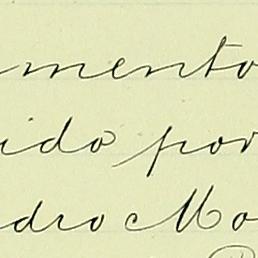 mento
ido por
dro Mo